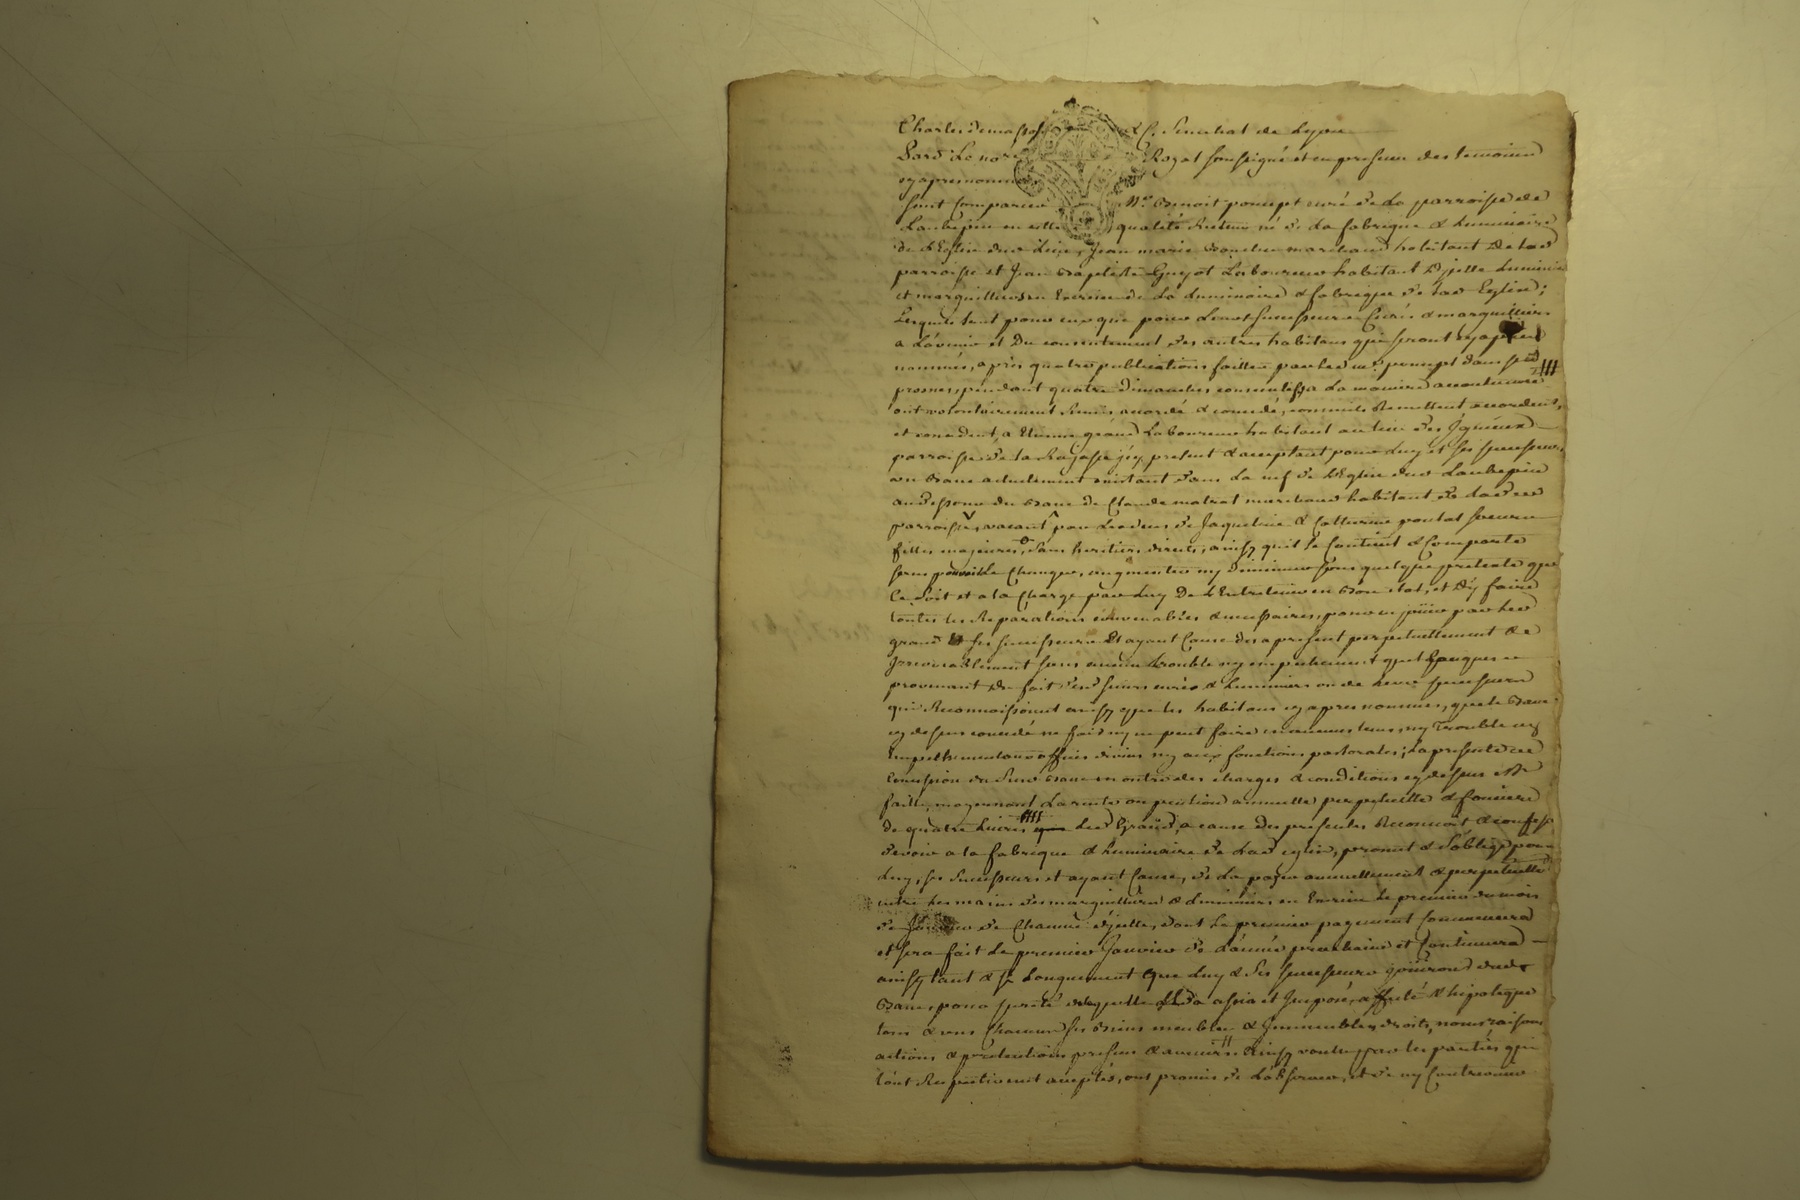 Charles demasso &c. Senechal de Lyon
Pard. Le not. Royal soussigné et en presence des temoins
cy apres nommes
sont comparus Mre Benoit poncept curé de La parroisse de
Laubepin en cette qualité Recteur né de La fabrique & Luminaire
de L'Eglise dud Lieu, Jean marie marchand habitant de lad
parroisse et Jean Baptiste Guyot Laboureur habitant Dyjelle Luminier
et marguilliers en Exercice de La Luminaire & fabrique de lad Eglise;
Lesquels tant pour eux que pour Leurs successeurs Curés & marguilliers
a L'avenir et Du consentement des autres habitans qui seront cy apres
nommés, après quatre publications faittes par led mre poncept dans ses
prosnes pendant quatre dimanches consecutifs a La maniere accoutumée
ont volontairement Remis accordé & concedé, comme ils Remettent accordent,
et concedent, a Etienne grand Laboureur habitant au lieu des
parroisse de la Rajasse icy present & acceptant pour Luy et ses successeurs,
un Banc actuellement existant dans La nef de L'Eglise dud Laubepin
au dessous du Banc de Claude matrat marchand habitant de lad
parroisse, vacant par Le deces de Jaqueline & Catherine pontal soeurs
filles majeures, sans heritiers directs, ainsy quil se Contient & Comporte
sans pouvoir Le Changer, augmenter ny Diminuer sous quelque pretexte que
Ce soit et a la Charge par Luy De L'Entretenir en Bon etat, et D'y faire
touttes les Reparations convenables & necessaires, pour en jouir par led
grand & ses successeurs Et ayant Cause des a present perpetuellement &
Irrevocablement sans aucun trouble ny empechement quel Conques
provenant Du fait desd sieurs curés & Luminiers ou de Leurs successeurs
qui Reconnoissent ainsy que les habitans cy apres nommés, que le Banc
cy dessus concedé ne fait ny ne peut faire en aucuns tems, ny Trouble ny
Empechement aux offices divins ny aux fonctions pastorales; La presente
Concession du susd Banc en outre des charges & conditions cy dessus est
faitte, moyennant La rente ou pention annuelle perpetuelle & fonciere
de quatre Livres que Led Grand, a cause Des presentes Reconnoit & confesse
devoir a la fabrique & Luminaire de Lad eglise, promet & s'oblige pour
Luy, ses successeurs et ayant Cause, de La payer annuellement & perpetuelle
entre Les mains des marguilliers & Luminiers en Exercice Le premier du mois
de Janvier de Chaque année, dont Le premier payement Commencera
et sera fait Le premier Janvier de L'année prochaine et Continuera
ainsy tant & si Longuement Que Luy & ses successeurs jouiront dud
Banc, pour sureté de laquelle il a assis et Imposé, affecté & hipotequé
tous & uns Chacuns ses Biens meubles & Immeubles, droits, noms, raisons
actions & pretentions presens & avenir Ainsy voulu par les parties qui
tout Respectivement acceptés, ont promis de L'observer, et de ny Contrevenir